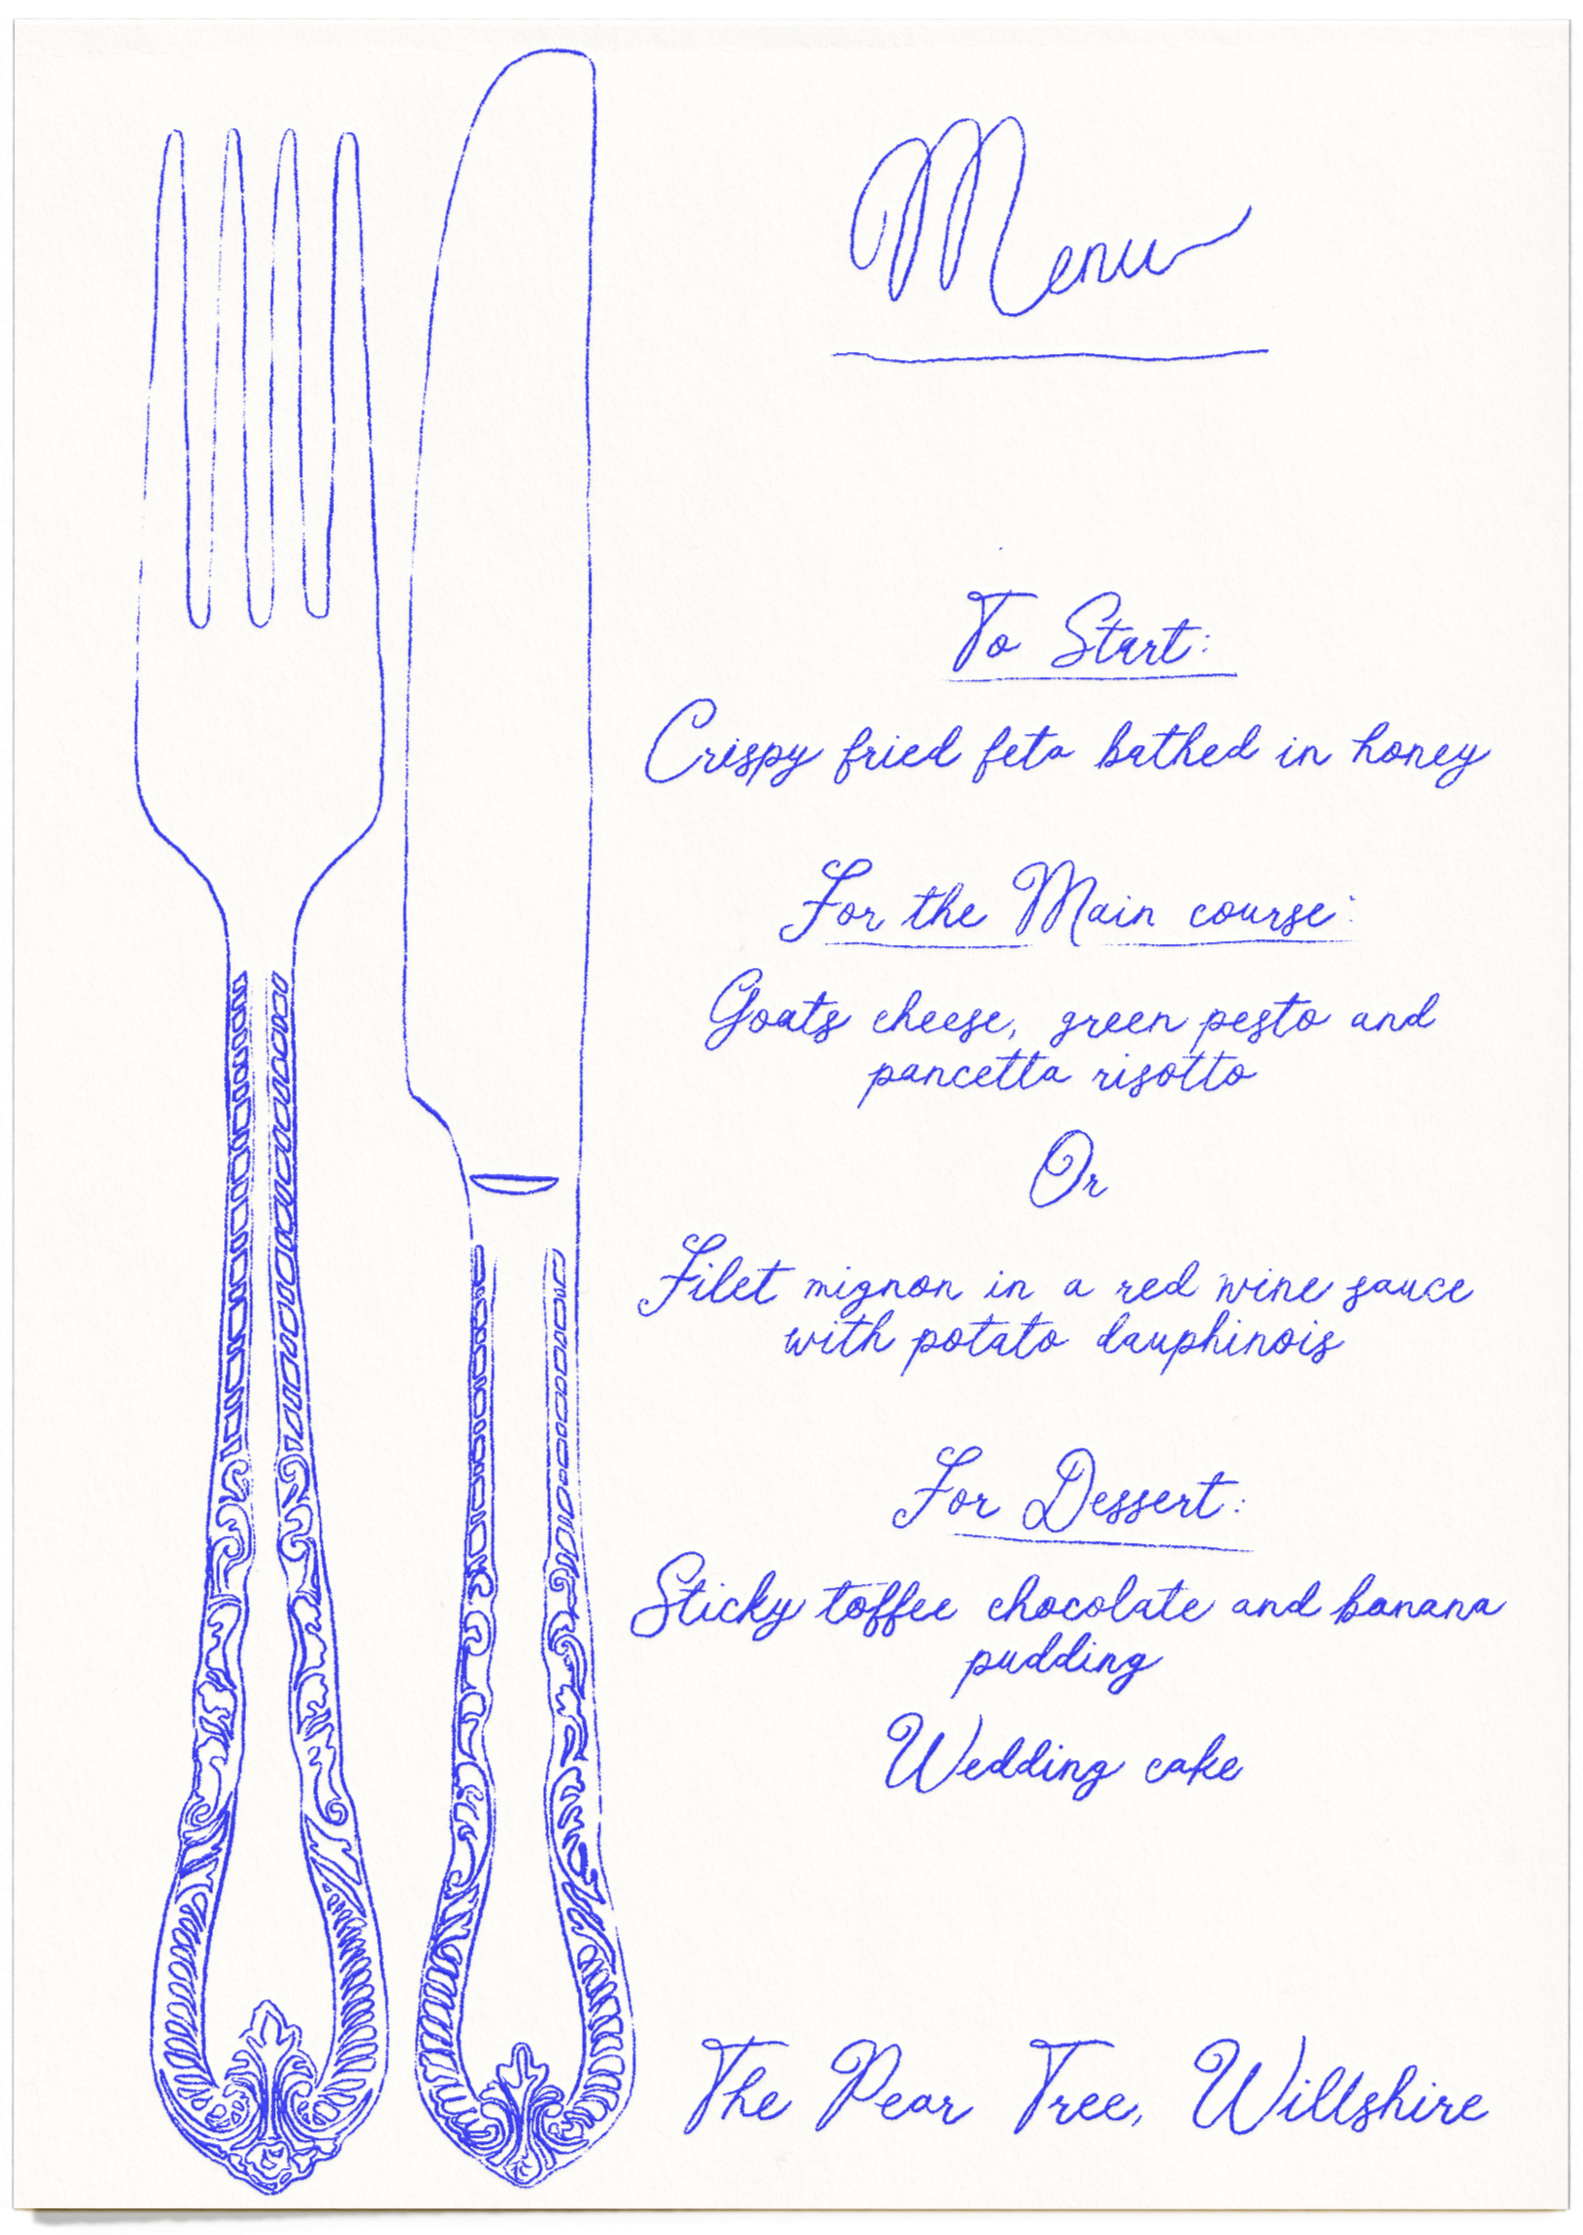 Menu
To Start:
Crispy fried feta bathed in honey
For the Main course:
Goats cheese, green pesto and
pancetta risotto
Or
Filet mignon in a red wine sauce
with potato dauphinois
For Dessert:
Sticky toffee chocolate and banana
pudding
Wedding cake
The Pear Tree, Willshire